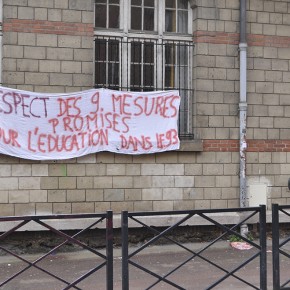 ESPECT DES 9. MESURES
PROMISES
OUR L'ÉDUCATION DANS LE 93